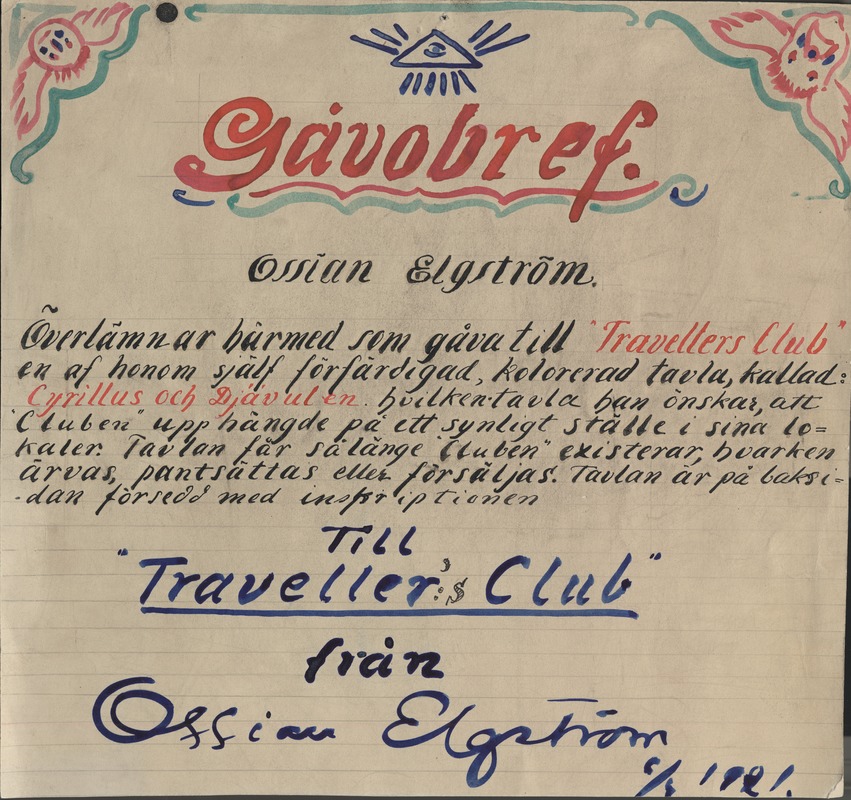 Gåvobref.
Ossian Elgström.
Överlämnar härmed som gåva till "Travellers Club"
en af honom själf förfärdigad, kolorerad tavla, kallad:
Cyrillus och Djävulen hvilken tavla han önskar, att
"Cluben" upphängde på ett synligt ställe i sina lo=
kaler. Tavlan får sålänge "Cluben" existerar, hvarken
ärvas, pantsättas eller försäljas. Tavlan är på baksi=
-dan försedd med inskriptionen
Till
"Traveller's Club"
från
Ossian Elgström
1921.